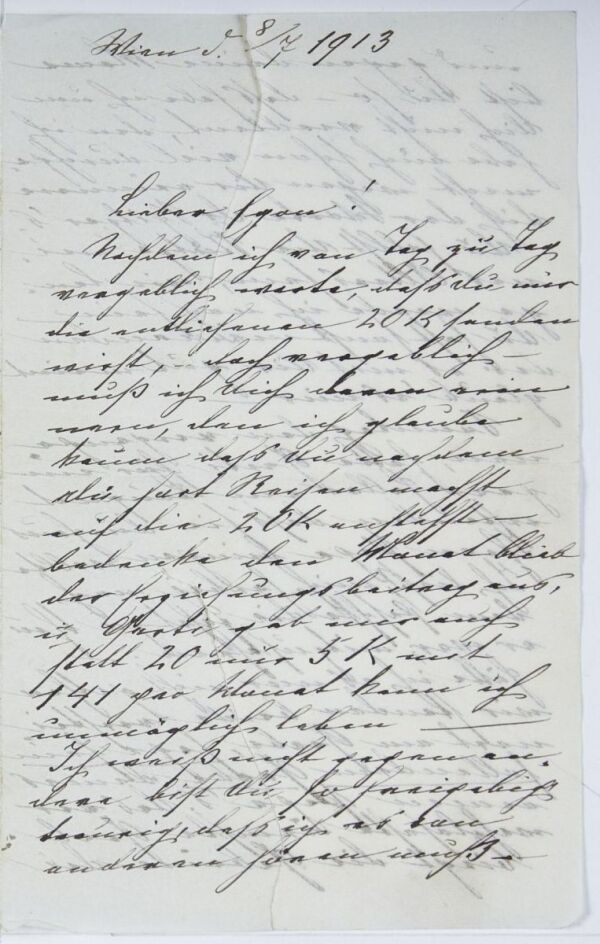 Wien d. 8/7 1913
Lieber Egon!
Nachdem ich von Tag zu Tag
vergeblich warte, daß du mir
die entliehenen 20 K senden
wirst, – doch vergeblich –
muß ich dich daran erin
nern, den ich glaube
kaum daß du nachdem
du fort Reisen machst
auf die 20 K anstehst –
bedenke den Monat blieb
der Erziehungsbeitrag aus,
u. Gerti gab mir auch
statt 20 nur 5 K mit
141 per Monat kann ich
unmöglich leben —
Ich weiß nicht gegen an-
dere bist du so freigebig
traurig, daß ich es von
anderen hören muß –